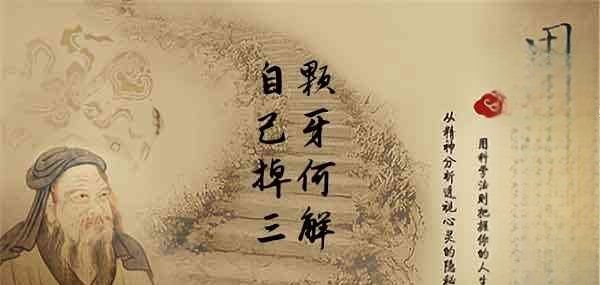 自己掉三
颗牙何解
从精神分析透视心灵的隐秘
用科学法则把握你的人生